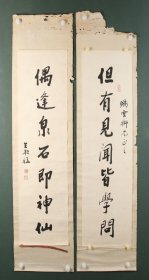 但有見聞皆學問
偶逢泉石即神仙